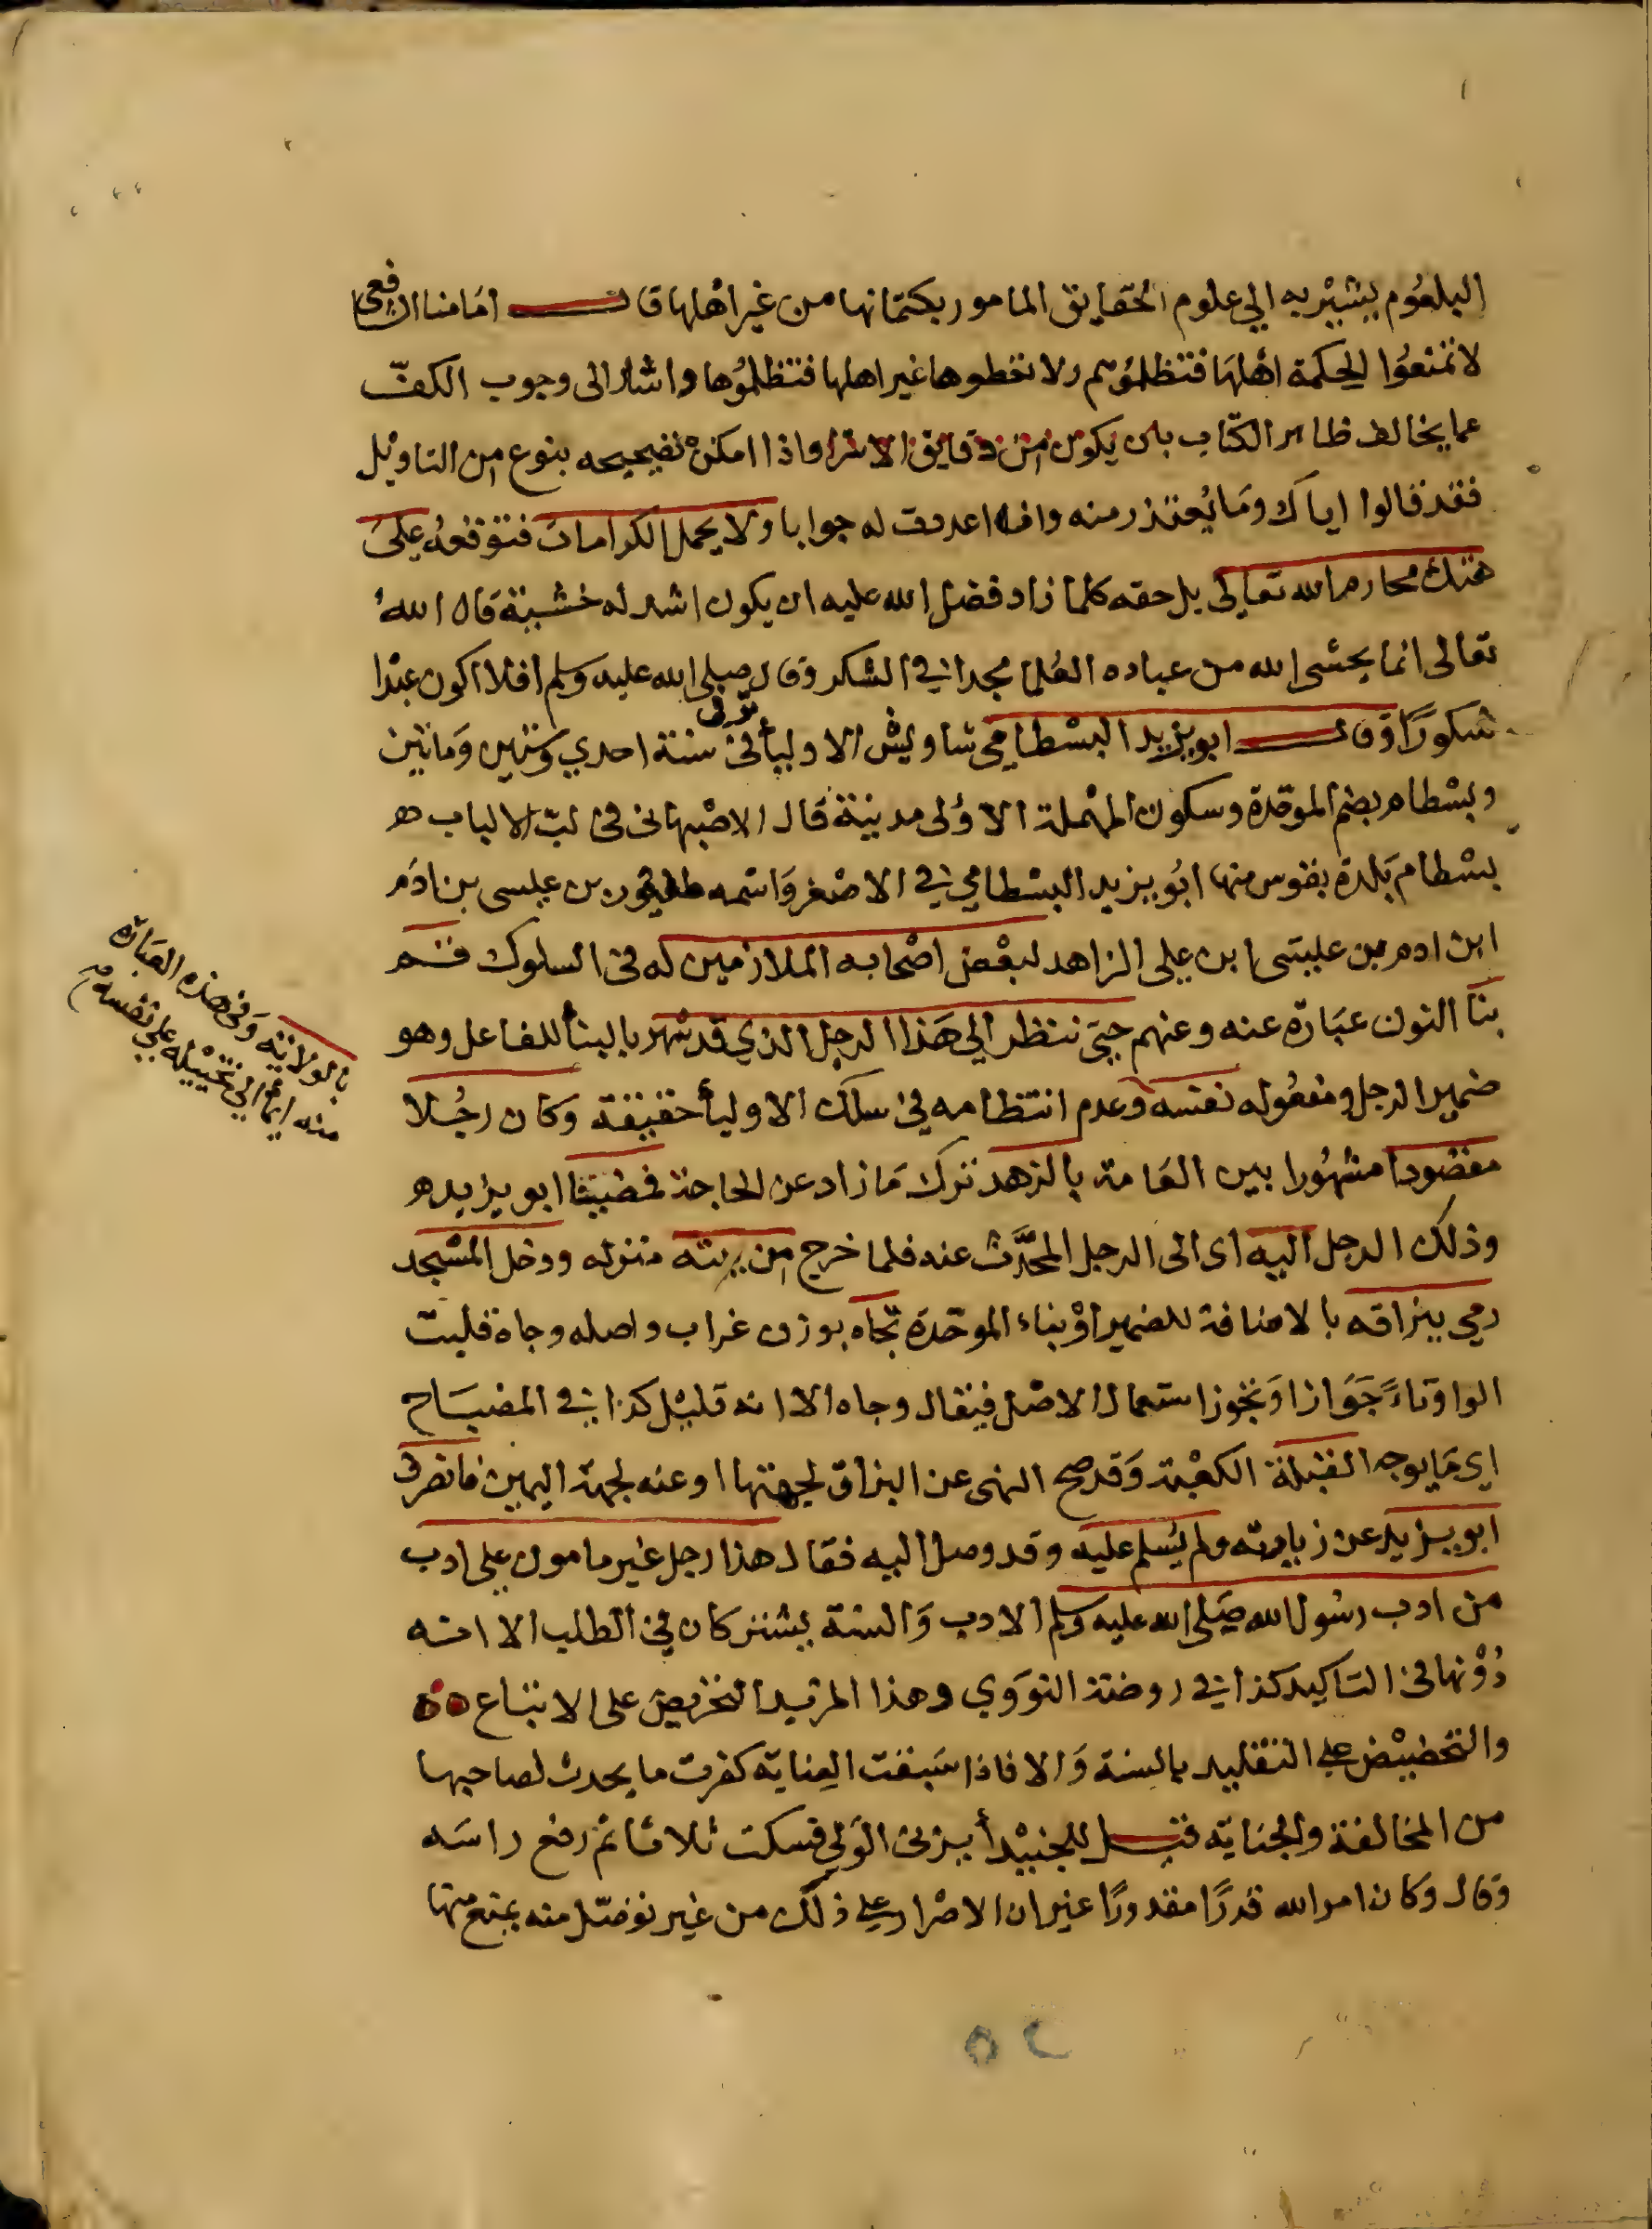 البلعوم يشير به الي علوم الحقايق المامور بكتمانها من غير اهلها قال امامنا الشافعي
لا تمنعوا الحكمة اهلها فتظلموهم ولا تعطوها غير اهلها فتظلموها واشار الى وجوب الكف
عما يخالف ظاهر الكتاب بان يكون من دقايق الاسرار واذا امكن تصحيحه بنوع من التاويل
فقد قالوا اياك وما يعتذر منه وان اعددت له جوابا ولا يحمل الكرامات فتوقعه على
هتك محارم الله تعالى بل حقه كلما زاد فضل الله عليه ان يكون اشد له خشية قال الله
تعالى انما يخشى الله من عباده العلما مجدا في الشكر وقال صلى الله عليه وسلم افلا اكون عبدا
شكورا وقال ابو يزيد البسطامي شاويش الاوليأ توفى في سنة احدي وستين ومائتين
وبسطام بضم الموحدة وسكون المهملة الاولى مدينة قال الاصبهاني في لب الالباب هو
بسطام بلدة بقومس منها ابو يزيد البسطامي في الاصغر واسمه طيفور بن عيسى بن ادم
ابن ادم بن عيسى ابن علي الزاهد لبعض اصحابه الملازمين له في السلوك قم
بنا النون عبارة عنه وعنهم حتى ننظر الي هذا الرجل الذي قد شهر بالبنأ للفاعل وهو
ضمير الرجل ومفعوله نفسه وعدم انتظامه في سلك الاوليأ حقيقة وكان رجلا
بالولاية وفي هذه العبارة
منه ايما الي تخييله على نفسه
مقصودا مشهورا بين العامة بالزهد ترك ما زاد عن الحاجة فمضينا ابو يزيد هو
وذلك الرجل اليه اى الى الرجل المحدث عنه فلما خرج من بيته منزله ودخل المسجد
رمي ببزاقه بالاضافة للضمير او بتاء الموحدة تجاه بوزن غراب واصله وجاه قلبت
الواو تاء جوازا ويجوز استعمال الاصل فيقال وجاه الا انه قليل كذا في المصباح
اي ما يوجه القبلة الكعبة وقد صح النهى عن البزاق لجهتها او عنه لجهة اليمين فانصرف
ابو يزيد عن زيارته ولم يسلم عليه وقد وصل اليه فقال هذا رجل غير مامون على ادب
من ادب رسول الله صلى الله عليه وسلم الادب والسنة يشتركان في الطلب الا انه
دونها في التاكيد كذا في روضة النووي وهذا المزيد التحريض على الاتباع
والتحضيض على التقليد بالسنة والا فاذا سبقت العناية كفرت ما يحدث لصاحبها
من المخالفة والجناية قيل للجنيد أيزني الولي فسكت ثلاثا ثم رفع راسه
وقال وكان امر الله قدرا مقدورا غير ان الاصرار على ذلك من غير تنصل منه يمنع منها